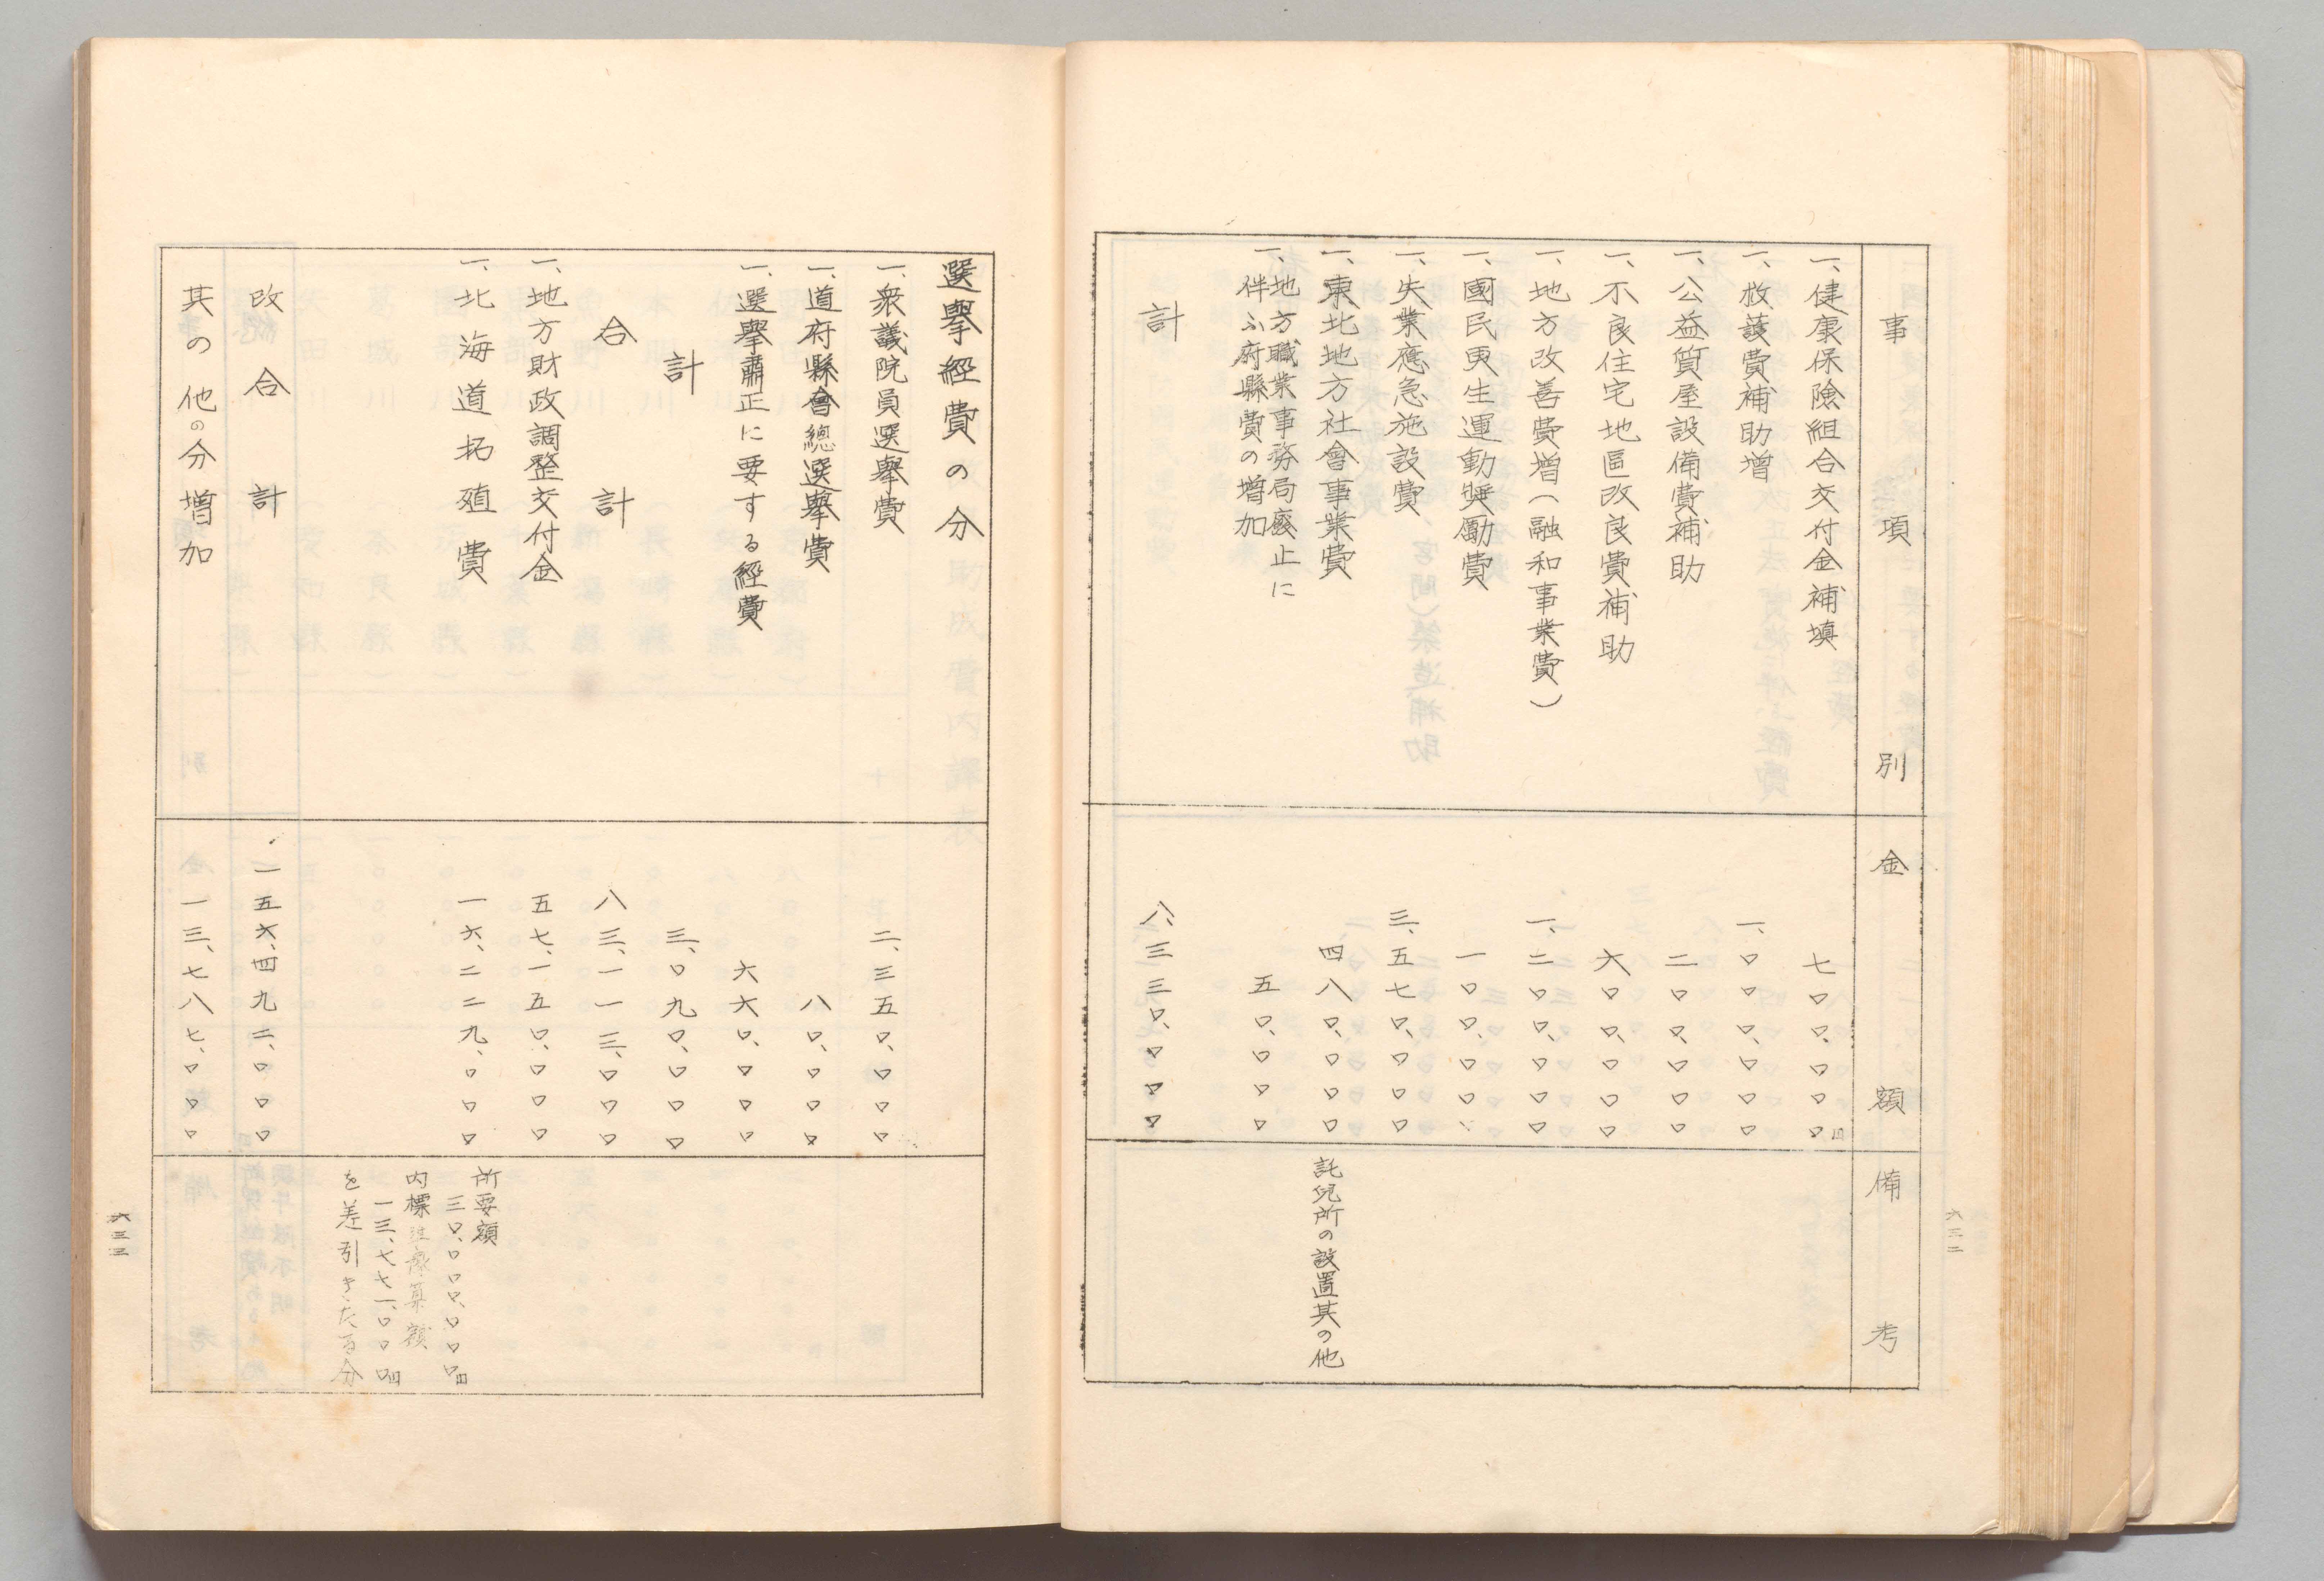 事項別 金額 備考
一、健康保險組合交付金補填 七〇〇、〇〇〇円
一、救護費補助増 一、〇〇〇、〇〇〇
一、公益質屋設備費補助 二〇〇、〇〇〇
一、不良住宅地區改良費補助 六〇〇、〇〇〇
一、地方改善費増(融和事業費) 一、二〇〇、〇〇〇
一、國民更生運動奬勵費 一〇〇、〇〇〇
一、失業應急施設費 三、五七〇、〇〇〇
一、東北地方社會事業費 四八〇、〇〇〇 託兒所の設置其の他
一、地方職業事務局廢止に
伴ふ府縣費の増加 五〇、〇〇〇
計 八、三三〇、〇〇〇
六三二
選擧經費の分
一、衆議院員選擧費 二、三五〇、〇〇〇
一、道府縣會總選擧費 八〇、〇〇〇
一、選擧肅正に要する經費 六六〇、〇〇〇
計 三、〇九〇、〇〇〇
合計 八三、一一三、〇〇〇
一、地方財政調整交付金 五七、一五〇、〇〇〇
一、北海道拓殖費 一六、二二九、〇〇〇
所要額
三〇、〇〇〇、〇〇〇円
内標準豫算額
一三、七七一、〇〇〇円
を差引きたる分
改合計 一五六、四九二、〇〇〇
其の他の分増加 一三、七八七、〇〇〇
六三三